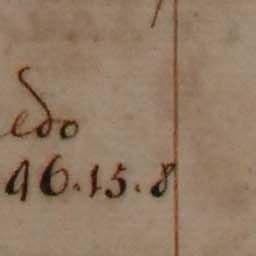 edo
96.15.8